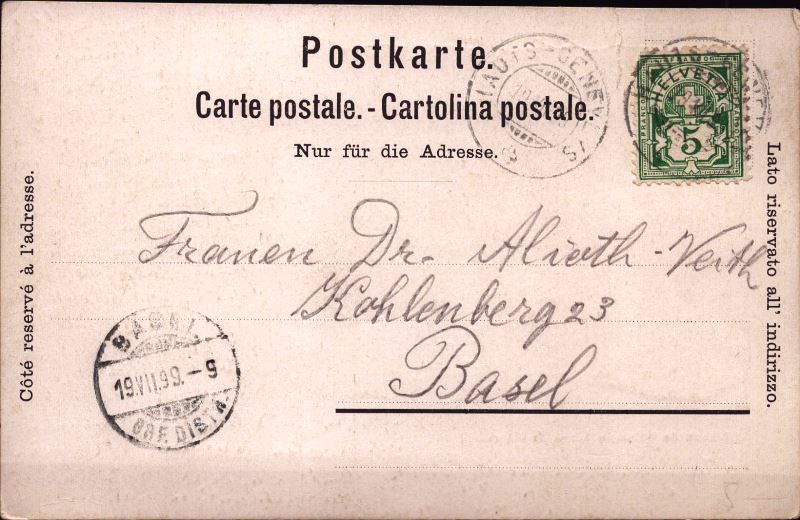 Postkarte.
Carte postale. - Cartolina postale.
Nur für die Adresse.
HAUTS-GENEVEYS
HELVETIA
FRANCO
5
Côté reservé à l'adresse.
Lato riservato all' indirizzo.
Frauen Dr. Alioth-Veith
Kohlenberg 23
Basel
BASEL
19.VII.99.-9
BRF. DISTR.